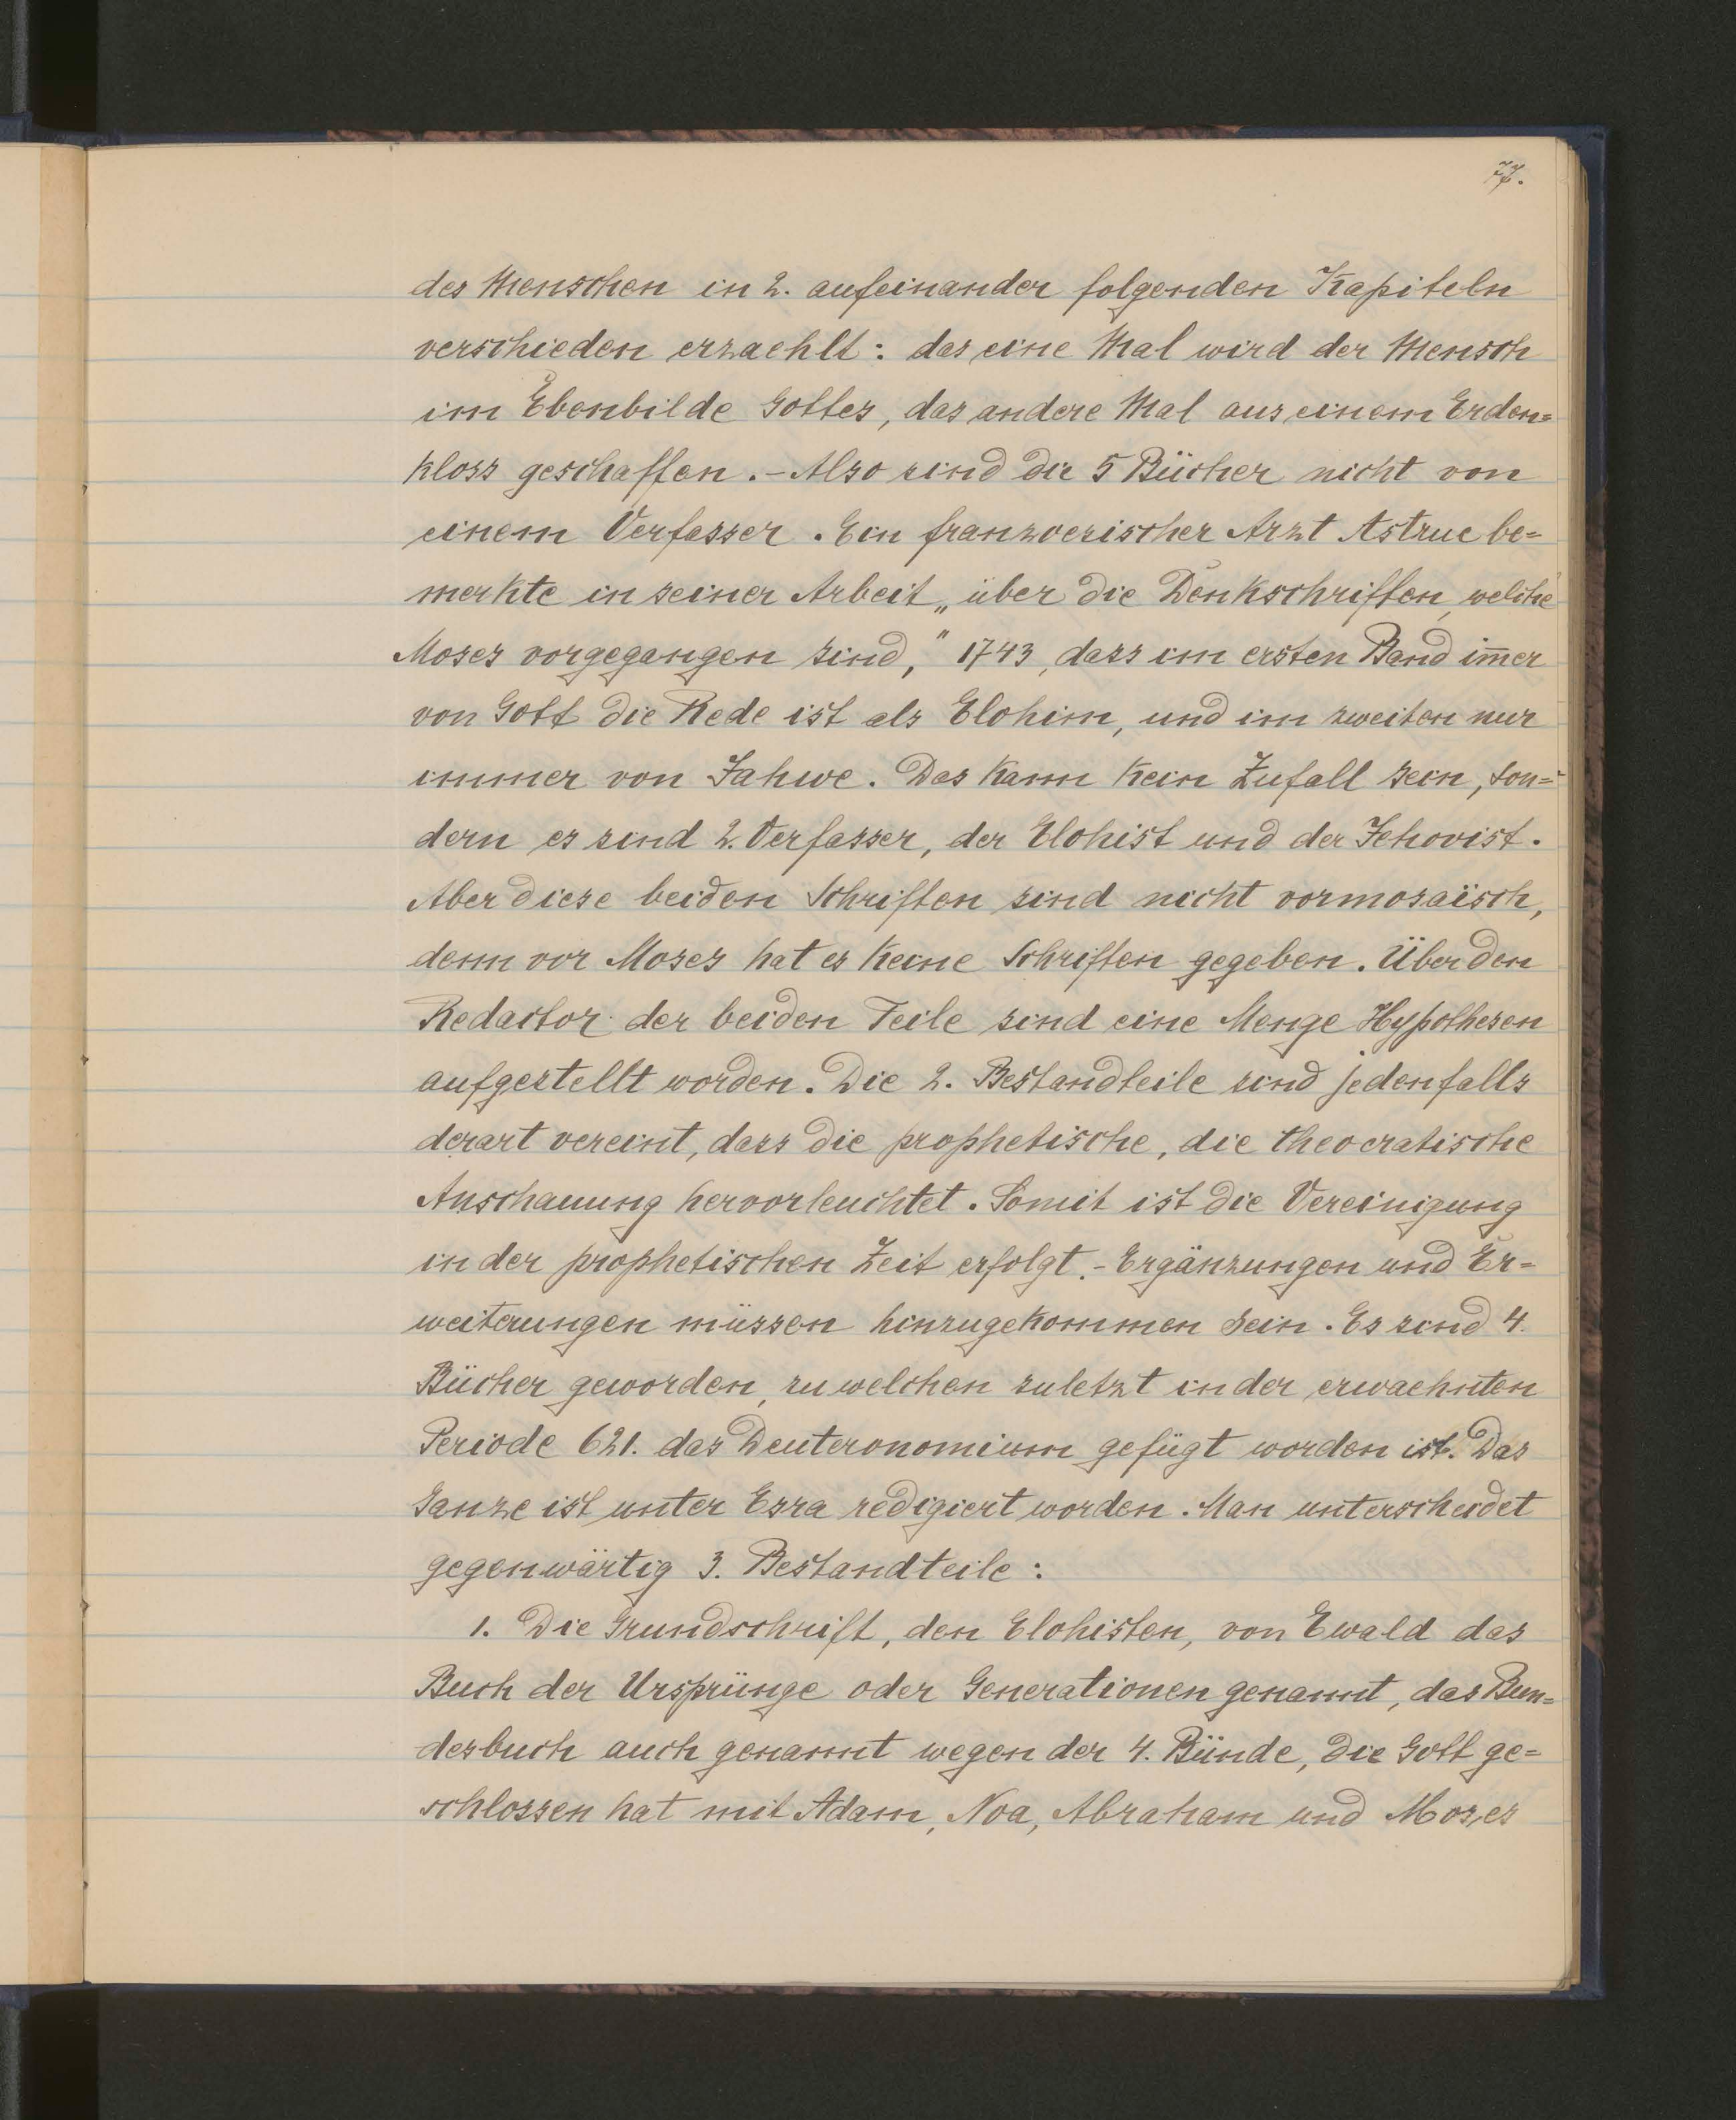 77.
des Menschen in 2. aufeinander folgenden Kapiteln
verschieden erzaehlt: das eine Mal wird der Mensch
im Ebenbilde Gottes, das andere Mal aus einem Erden=
kloss geschaffen. - Also sind die 5 Bücher nicht von
einem Verfasser. Ein franzoesischer Arzt Astruc be=
merkte in seiner Arbeit „über die Denkschriften, welche
Moses vorgegangen sind," 1743, dass im ersten Band im̄er
von Gott die Rede ist als Elohim, und im zweiten nur
immer von Jahwe. Das kann kein Zufall sein, son=
dern es sind 2. Verfasser, der Elohist und der Jehovist.
Aber diese beiden Schriften sind nicht vormosaïsch,
denn vor Moses hat es keine Schriften gegeben. Über den
Redactor der beiden Teile sind eine Menge Hypothesen
aufgestellt worden. Die 2. Bestandteile sind jedenfalls
derart vereint, dass die prophetische, die theocratische
Anschauung hervorleuchtet. Somit ist die Vereinigung
in der prophetischen Zeit erfolgt. - Ergänzungen und Er=
weiterungen müssen hinzugekommen sein. Es sind 4.
Bücher geworden, zu welchen zuletzt in der erwaehnten
Periode 621. das Deuteronomium gefügt worden ist. Das
Ganze ist unter Esra redigiert worden. Man unterscheidet
gegenwärtig 3. Bestandteile:
1. Die Grundschrift, den Elohisten, von Ewald das
Buch der Ursprünge oder Generationen genannt, das Bun=
desbuch auch genannt wegen der 4. Bünde, die Gott ge=
schlossen hat mit Adam, Noa, Abraham und Moses